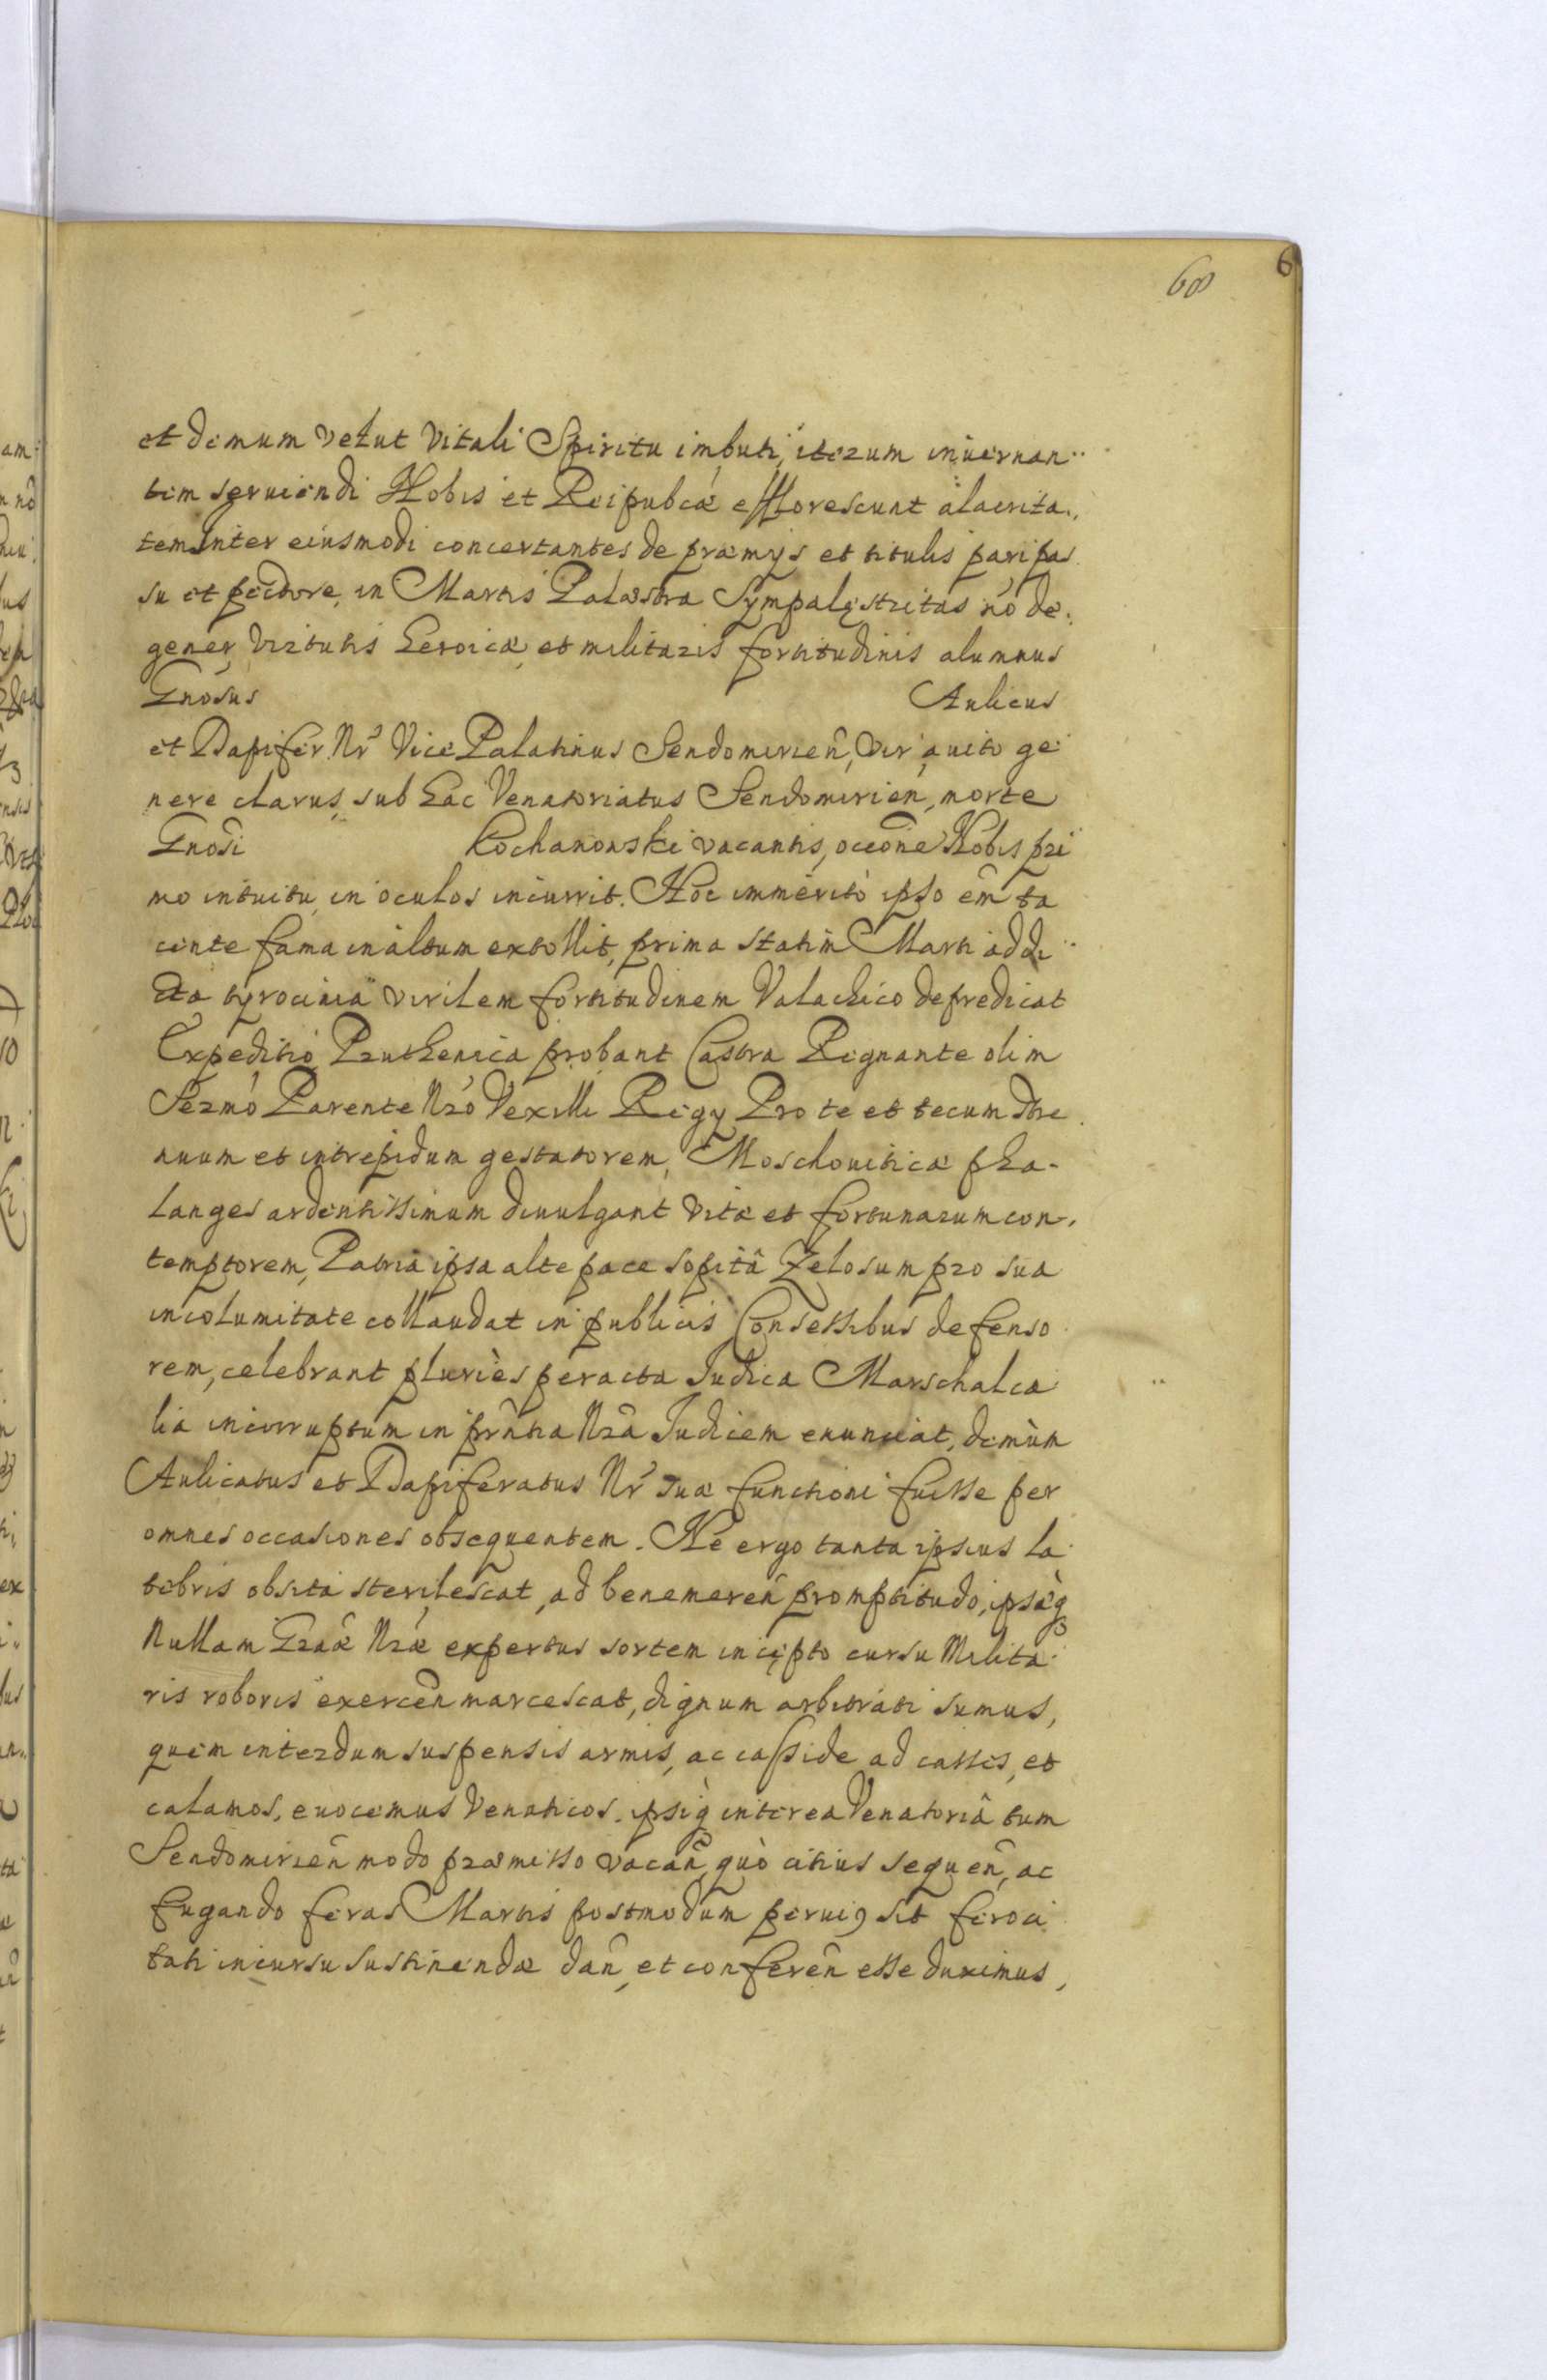 60
6
et demum velut vitali Spiritu imbuti, iterum inuernan..
tem seruiendi Nobis et Reipubcæ efflorescunt alacrita..
tem Inter eiusmodi concertantes de præmijs et titulis pari pas
su et pectore, in Martis Palæstra Sympalęstritas nõ de.
gener, Virtutis heroicæ, et militaris fortitudinis alumnus
Gnosus Aulicus
et Dapifer Nr̃ Vice Palatinus Sendomirien̄, Vir auito ge
nere clarus, sub hac Venatoriatus Sendomirien̄, morte
Gnosi Kochanowski vacantis, occõne Nobis pri
mo intuitu in oculos incurrit. Hoc immeritò ipso em̄ ta
cente fama in altum extollit, prima statim Marti addi
cta tyrocinia virilem fortitudinem Valachico depredicat
Expeditio, Pruthenica probant Castra Regnante olim
Sermõ Parente Nrõ Vexilli Regy Pro te et tecum stre
nuum et intrepidum gestatorem, Moschouiticæ pha-
langes ardentissimum diuulgant vitæ et fortunarum con-
temptorem, Patria ipsa alte pace sopitâ Zelosum pro sua
incolumitate collaudat in publicis Consessibus defenso
rem, celebrant pluriès peracta Iudica Marschalca
lia incorruptum in prñtia Nrã Iudicem enunciat, demùm
Aulicatus et Dapiferatus Nr̃ suæ functioni fuisse per
omnes occasiones obsequentem. Ne ergo tanta ipsius la
tebris obsita sterilescat, ad benemeren̄ promptitudo, ipsæq
Nullam Graæ Nræ expertus sortem incępto cursu Milita
ris roboris exercen̄ marcescat, dignum arbitrati sumus,
quem interdum suspensis armis, ac casside ad casses, et
calamos, euocemus Venaticos. ipsiq interea Venatoriâ tum
Sendomirien̄ modo præmisso vacan̄, quò citius sequen̄, ac
fugando feras Martis postmodum peruig sit feroci
tati incursu sustinendæ dan̄, et conferen̄ esse duximus,